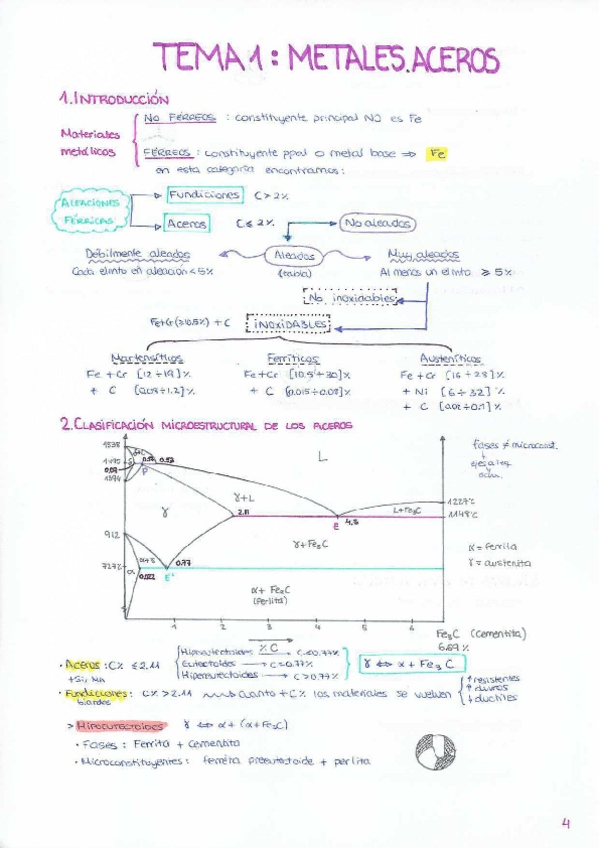 TEMA 1: METALES. ACEROS
1. INTRODUCCIÓN
Materiales metálicos
NO FÉRREOS : constituyente principal NO es Fe
FÉRREOS : constituyente ppal o metal base ⇒ Fe
en esta categoría encontramos:
ALEACIONES FÉRRICAS
Fundiciones C > 2%
Aceros C ≤ 2%
No aleados
Aleados
(tabla)
Débilmente aleados
Cada elmto en aleación < 5%
Muy aleados
Al menos un elmto. ≥ 5%
No inoxidables
Fe+Cr(≥10.5%) + C
INOXIDABLES
Martensíticos
Fe + Cr [12÷19]%
+ C [0.08÷1.2]%
Ferríticos
Fe + Cr [10.5÷30]%
+ C [0.015÷0.08]%
Austeníticos
Fe + Cr [16÷28]%
+ Ni [6÷32]%
+ C [0.02÷0.1]%
2. CLASIFICACIÓN MICROESTRUCTURAL DE LOS ACEROS
1538
1495
1394
912
727
δ+L
0.09
0.17
0.53
P
L
γ+L
γ
2.11
E
4.3
L+Fe3C
1227°C
1148°C
γ+Fe3C
α+γ
0.77
α
0.022
E'
α+ Fe3C
(Perlita)
1 2 3 4 5 6
Fe3C (Cementita)
6.67%
fases ≠ microconst.
α = ferrita
γ = austenita
· Aceros : C% ≤ 2.11
+Si, Mn
% C
Hipoeutectoides → C<0.77%
Eutectoides → C=0.77%
Hipereutectoides → C>0.77%
γ ⇔ α + Fe3C
· Fundiciones: C% > 2.11 Cuanto + C% los materiales se vuelven
↑ resistentes
↑ duros
↓ ductiles
> HIPOEUTECTOIDES γ ⇔ α + (α+Fe3C)
· Fases : Ferrita + Cementita
· Microconstituyentes : ferrita proeutectoide + perlita
4